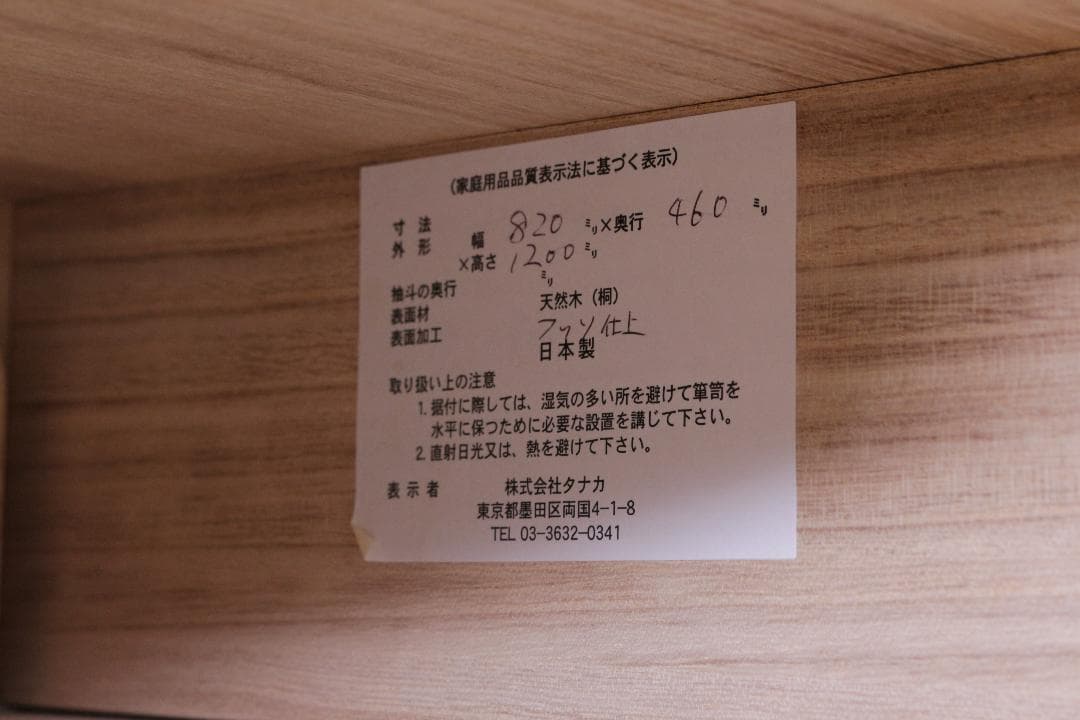 (家庭用品品質表示法に基づく表示)
寸法
外形 幅 820 ミリ×奥行 460 ミリ
×高さ 1200 ミリ
抽斗の奥行 ミリ
表面材 天然木(桐)
表面加工 フッソ仕上
日本製
取り扱い上の注意
1. 据付に際しては、湿気の多い所を避けて箪笥を
水平に保つために必要な設置を講じて下さい。
2. 直射日光又は、熱を避けて下さい。
表示者 株式会社タナカ
東京都墨田区両国4-1-8
TEL 03-3632-0341